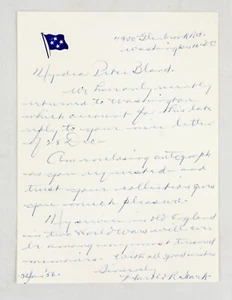 4900 Glenbrook Rd.
Washington 16 DC
My dear Peter Bland,
We have only recently
returned to Washington
which account for this late
reply to your nice letter
of 28 Dec.
Am enclosing autograph
as you requested - and
trust your collection gives
you much pleasure.
My service in old England
in two World Wars will ever
be among my most treasured
memories. With all good wishes
Sincerely
Harold R Stark